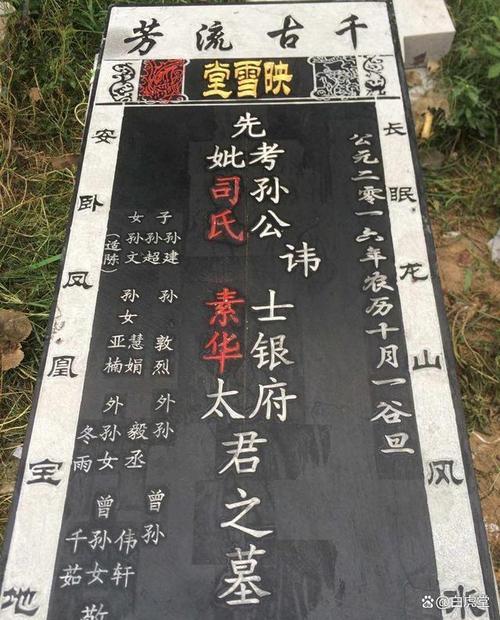 千古流芳
映雪堂
长眠龙山风水
公元二零一六年农历十月一谷旦
先
考孙公讳士银府
妣司氏素华太
君之墓
子
孙建
孙超
女
孙文
(适陈)
孙
敦烈
慧娟
孙女
亚楠
外孙
毅丞
外孙女
冬雨
曾孙
伟轩
曾孙女
千茹
敬
安卧凤凰宝地
@白虎堂